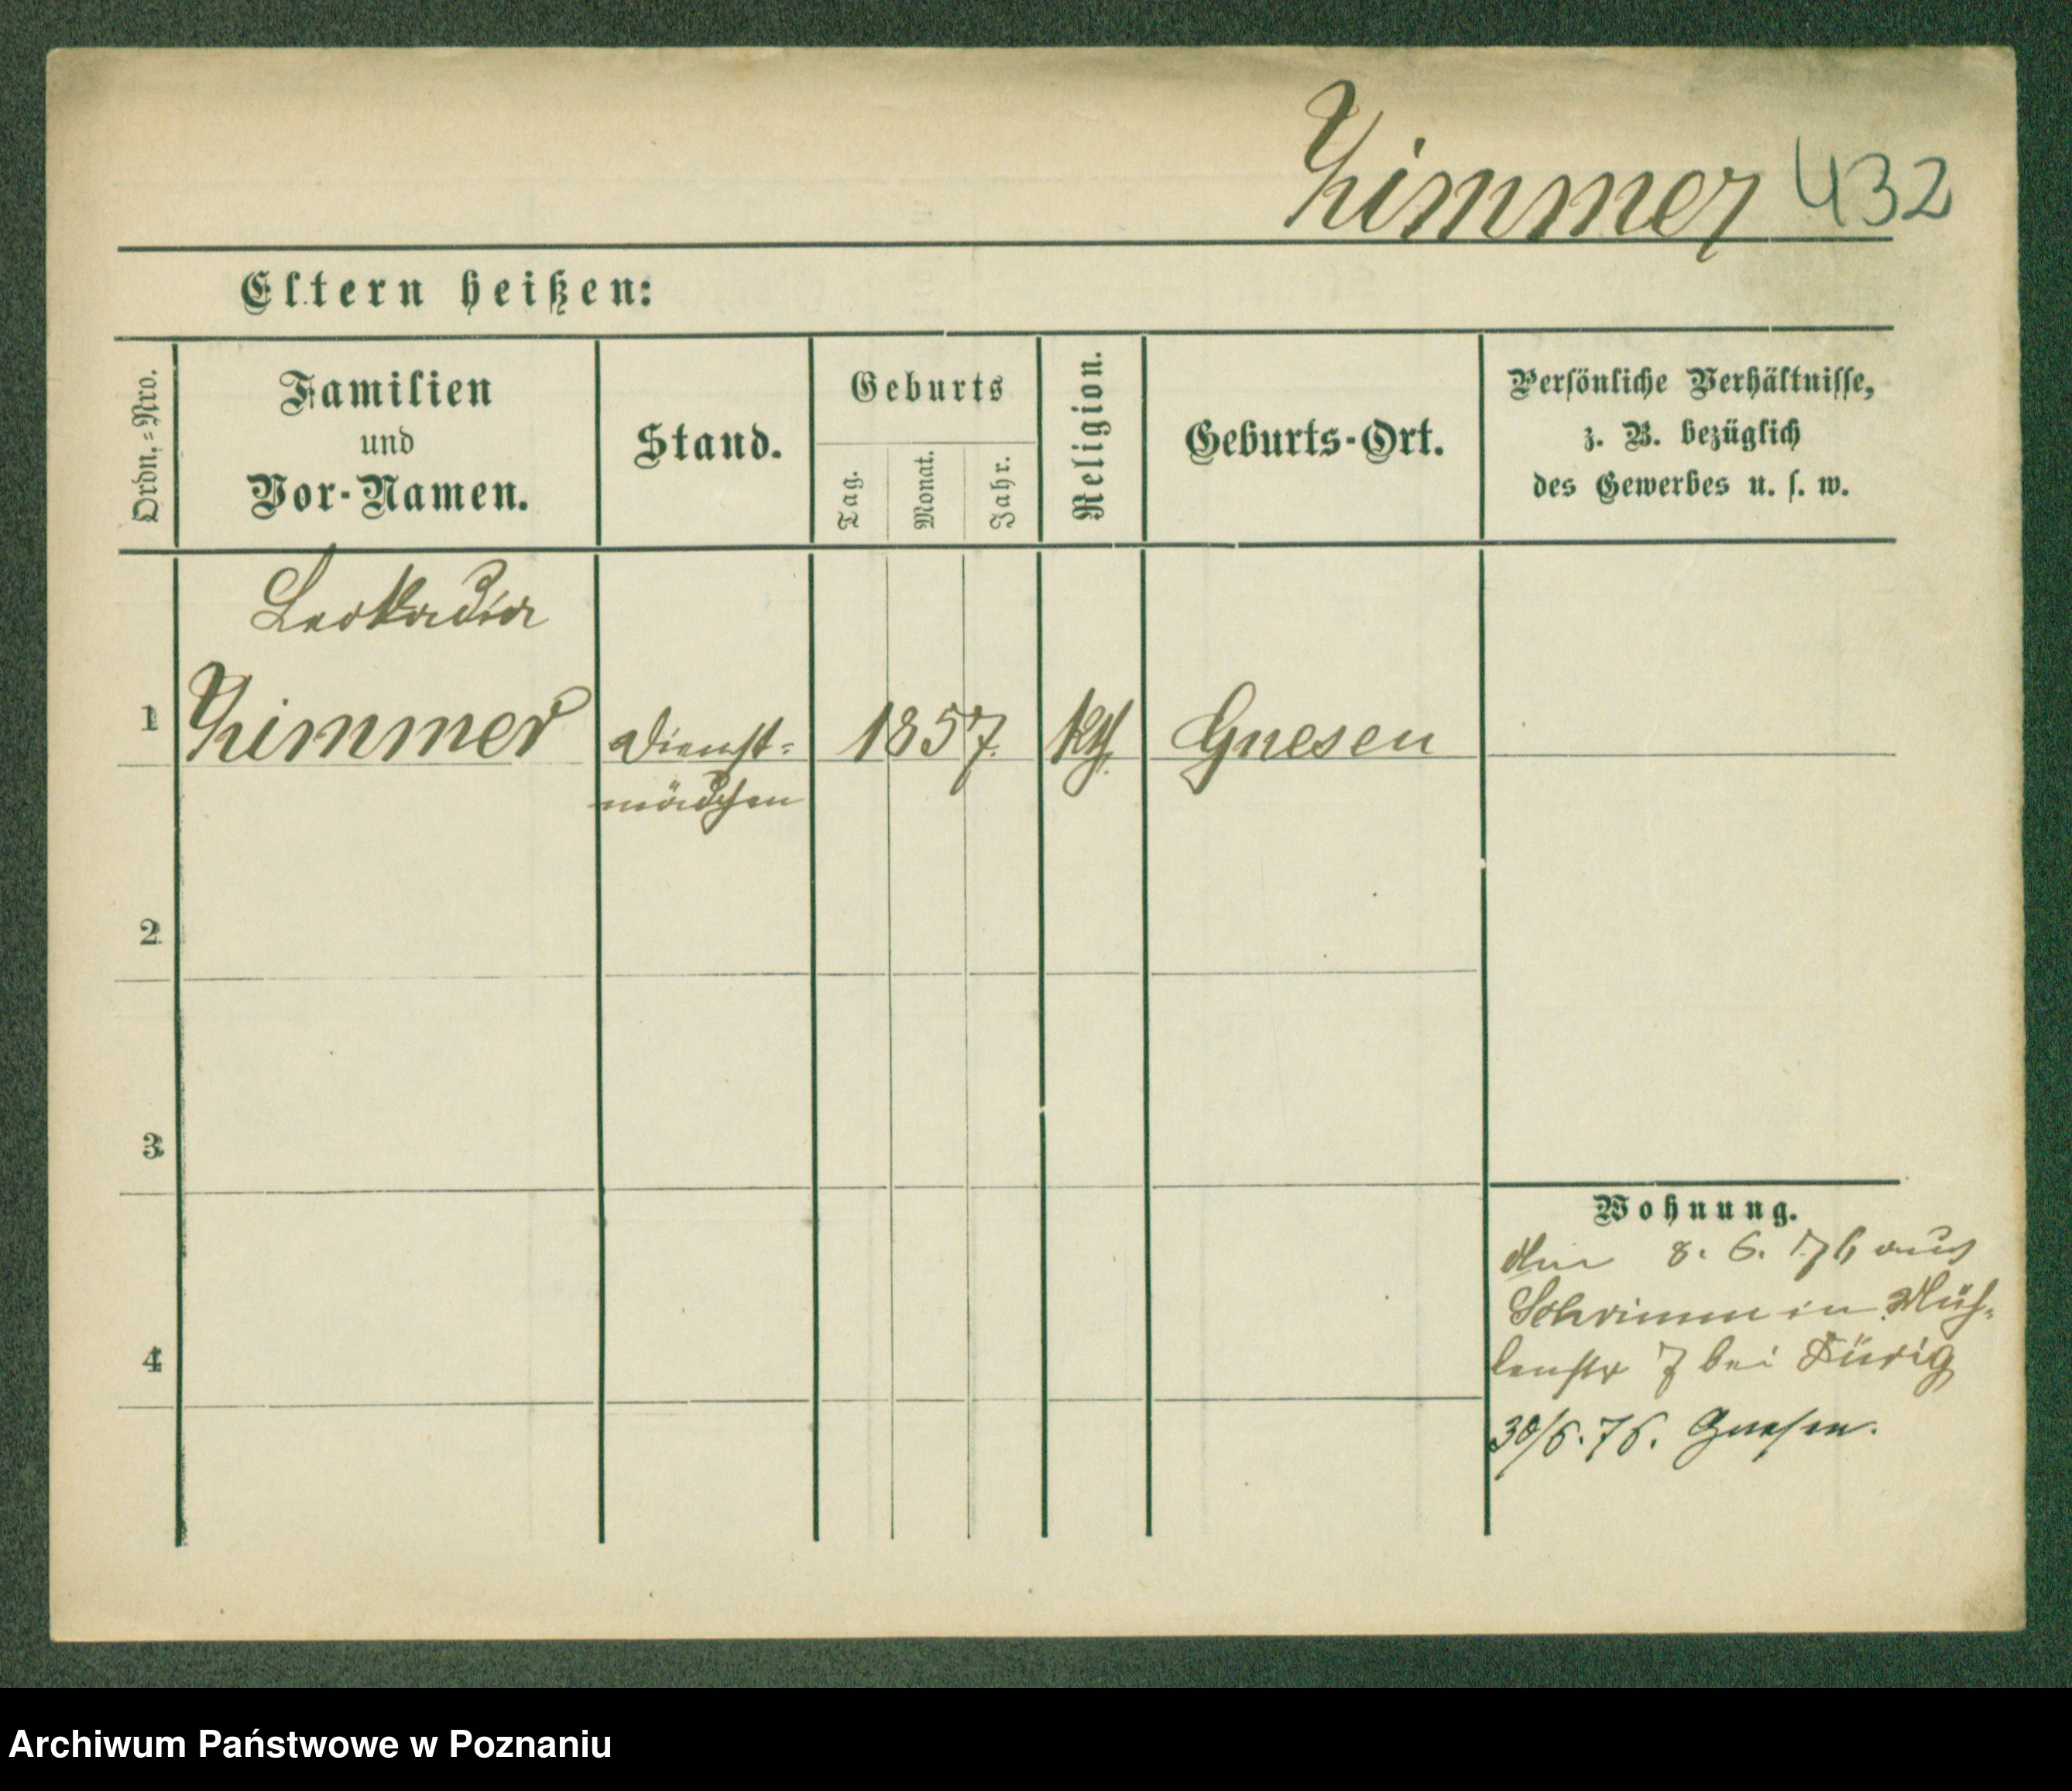 Zimmer 432
Eltern heißen:
Ordn.=Nro.
Familien
und
Vor-Namen.
Stand.
Geburts
Tag.
Monat.
Jahr.
Religion.
Geburts-Ort.
Persönliche Verhältnisse,
z. B. bezüglich
des Gewerbes u. s. w.
Leokadia
1 Zimmer Dienst= 1857. kth. Gnesen
mädchen
2
3
4
Wohnung.
8. 6. 76 aus
Schrimm in Müh=
lenstr 7 bei
30/6. 76. Gnesen.
Archiwum Państwowe w Poznaniu